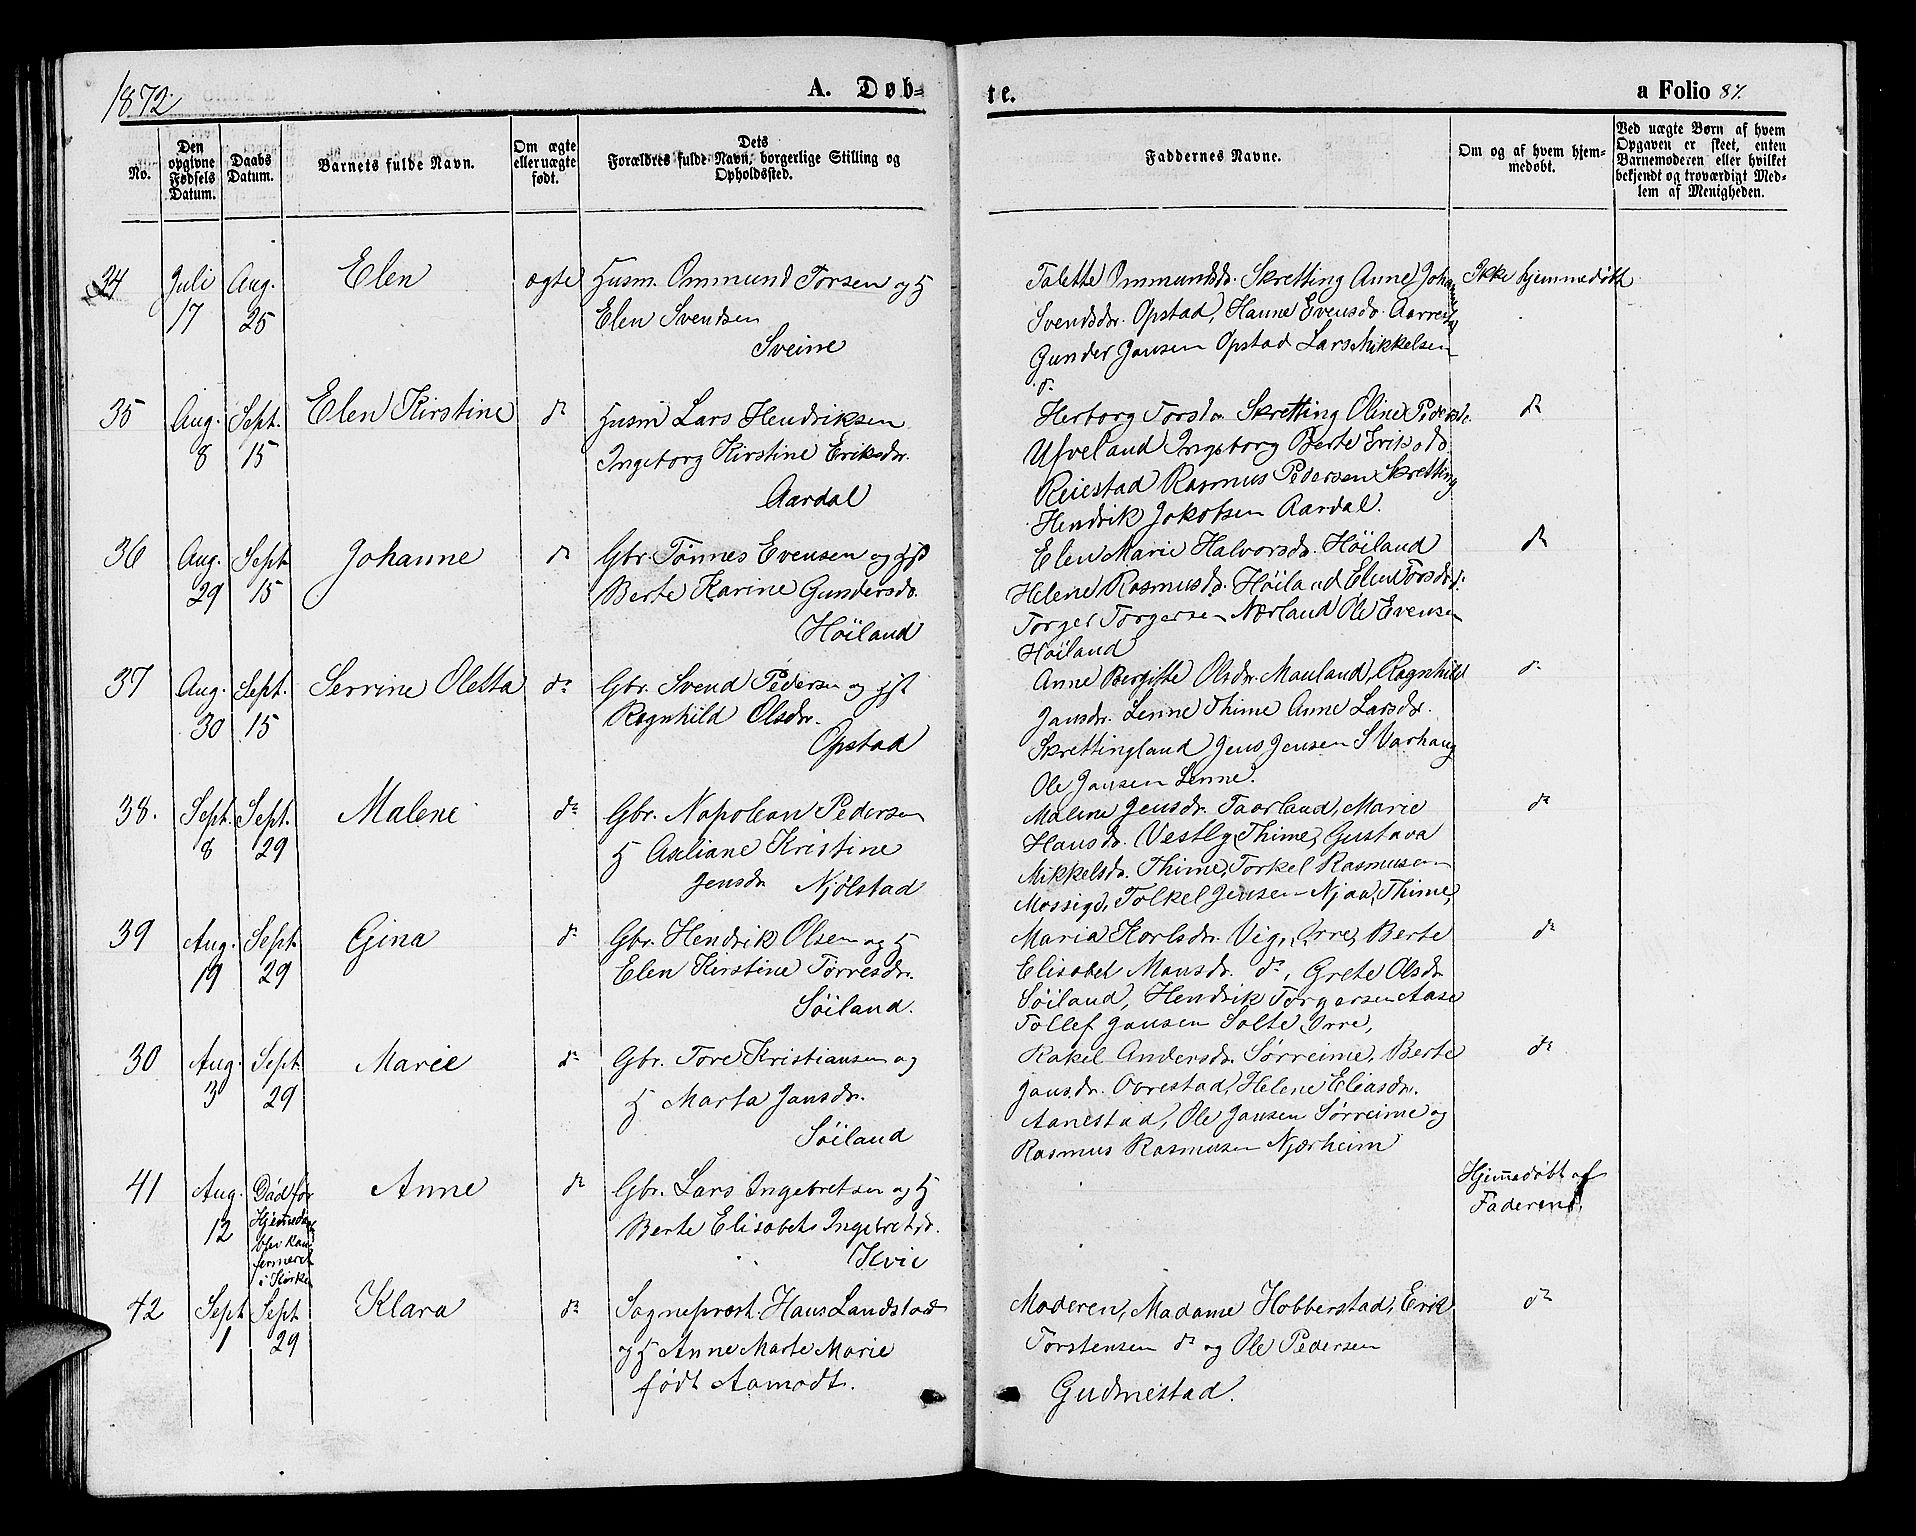 1872.
A. Døb-
te.
a Folio 87.
No.
Den opgivne Fødsels Datum.
Daabs Datum.
Barnets fulde Navn.
Om ægte eller uægte født.
Dets Forældres fulde Navn, borgerlige Stilling og Opholdssted.
Faddernes Navne.
Om og af hvem hjemmedøbt.
Ved uægte Børn af hvem Opgaven er skeet, enten Barnemoderen eller hvilket bekjendt og troværdigt Medlem af Menigheden.
34 Juli 17 Aug. 25 Elen ægte
Husm. Ommund Torsen og H
Elen Svendsen
Sveine
Talette Ommundsdr. Skretting Anne Johanne
Svendsdr. Opstad, Hanne Evensdr. Aarrestad
Gunder Jansen Opstad Lars Mikkelsen
dº
Ikke hjemmedøbt
35 Aug. 8 Sept. 15 Elen Kirstine dº
Husm Lars Hendriksen
Ingeborg Kirstine Eriksdr.
Aardal
Herborg Torsdr Skretting Oline Pedersdr.
Ufveland Ingeborg Berte Eriksdr.
Reiestad Rasmus Pedersen Skretting
Hendrik Jakobsen Aardal.
dº
36 Aug. 29 Sept. 15 Johanne dº
Gbr. Tønnes Evensen og Hst
Berte Karine Gundersdr.
Høiland
Elen Marie Halvorsdr. Høiland
Helene Rasmusdr. Høiland Elen Torsdr dº.
Torger Torgersen Nærland Ole Evensen
Høiland
dº
37 Aug. 30 Sept. 15 Serrine Oletta dº
Gbr. Svend Pedersen og Hst
Ragnhild Olsdr.
Opstad
Anne Bergitte Olsdr. Mauland, Ragnhild
Jansdr. Lenne Thime Anne Larsdr.
Skrettingland Jens Jensen S Varhaug
Ole Jansen Lenne.
dº
38. Sept. 8 Sept. 29 Malene dº
Gbr. Napolean Pedersen
H Axliane Kristine
Jensdr Njølstad
Malene Jensdr. Taarland, Marie
Hansdr. Vestly Thime, Gustava
Mikkelsdr. Thime, Torkel Rasmusen
Mossige, Tolkel Jensen Njaa, Thime,
dº
39 Aug. 19 Sept. 29 Gina dº
Gbr. Hendrik Olsen og H
Elen Kirstine Tørresdr.
Søiland.
Maria Karlsdr. Vig, Orre, Berte
Elisabet Mansdr. dº, Grete Olsdr
Søiland, Hendrik Torgersen Aase
Tollef Jansen Salte, Orre,
dº
30 Aug. 3 Sept. 29 Marie dº
Gbr. Tore Kristiansen og
H Marta Jansdr.
Søiland
Rakel Andersdr. Sørreime, Berte
Jansdr. Overestad, Helene Eliasdr.
Aanestad, Ole Jansen Sørreime og
Rasmus Rasmusen Njærheim
dº
41 Aug. 12 Død før
Hjemmedaab
blev kon-
fermeret
i Kirken
Anne dº
Gbr. Lars Ingebretsen og H
Berte Elisabets Ingebretsdr.
Kvie
Hjemmedøbt af
Faderens.
42 Sept 1 Sept 29 Klara dº
Sogneprest. Hans Landstad
og H Anne Marte Marie
født Aamodt.
Moderen, Madame Hobberstad, Erik
Torstensen dº og Ole Pedersen
Gudmestad.
dº